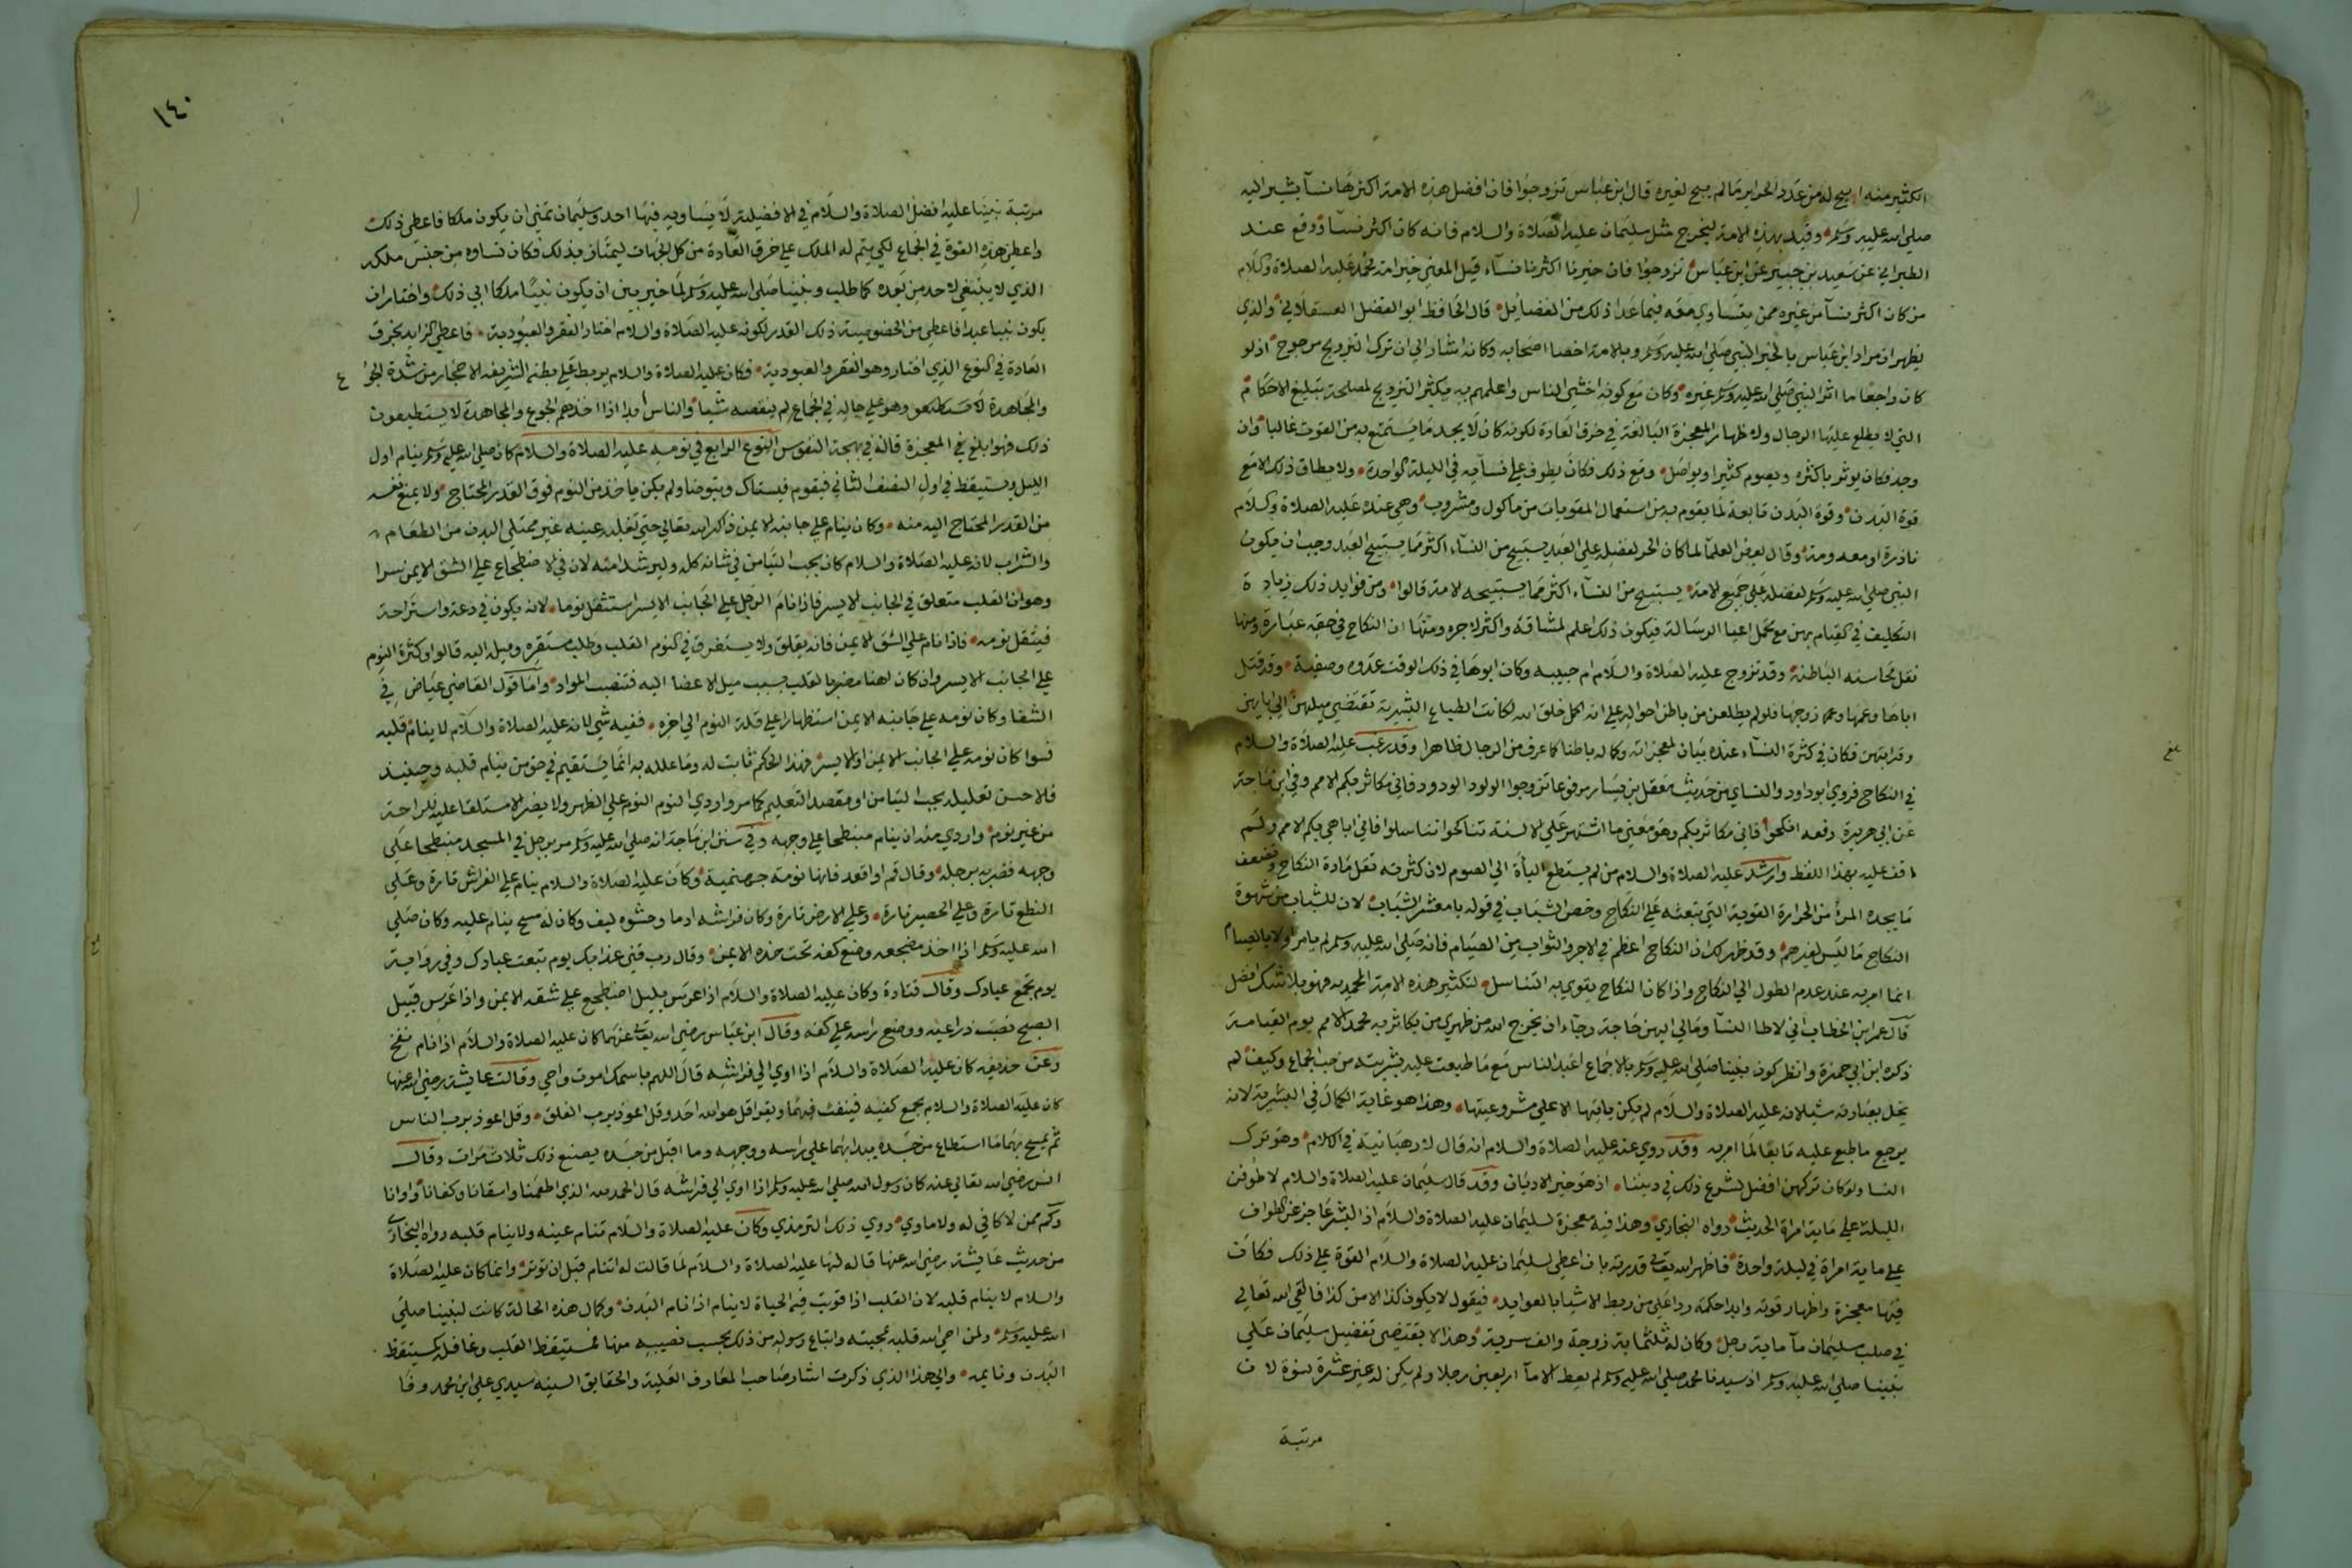 الكثير منه ابيح له من عدد الحراير ما لم يبح لغيره قال ابن عباس تزوجوا فان افضل هذه الامة اكثرها نسآ يشير اليه
صلى الله عليه وسلم وقيد بهذه الامة ليخرج مثل سليمان عليه الصلاة والسلام فانه كان اكثر نسآ ووقع عند
الطبراني عن سعيد بن جبير عن ابن عباس تزوجوا فان خيرنا اكثرنا نسآء قيل المعني خير امة محمد عليه الصلاة وكلام
من كان اكثر نسآ من غيره ممن يتساوي معه فيما عدا ذلك من الفضايل قال الحافظ ابو الفضل العسقلاني والذي
يظهر ان مراد ابن عباس بالخير النبي صلى الله عليه وسلم وبالامة اخصا اصحابه وكانه اشار الي ان ترك التزويج مرجوح اذ لو
كان راجحا ما اثر النبي صلى الله عليه وسلم غيره وكان مع كونه اخشي الناس واعلمهم به يكثر التزويج لمصلحة تبليغ الاحكام
التي لا يطلع عليها الرجال ولاظهار المعجزة البالغة في خرق العادة لكونه كان لا يجد ما يستمتع به من القوت غالبا وان
وجد فكان يوثر باكثره ويصوم كثيرا ويواصل ومع ذلك فكان يطوف علي نسآيه في الليلة الواحدة ولا يطاق ذلك الا مع
قوة البدن وقوة البدن تابعة لما يقوم به من استعمال المقويات من ماكول ومشروب وهي عنده عليه الصلاة وكلام
نادرة او معدومة وقال بعض العلمآ لما كان الحر لفضله علي العبد يستبيح من النسآء اكثر مما يستبيح العبد وجب ان يكون
النبي صلى الله عليه وسلم لفضله علي جميع الامة يستبيح من النسآء اكثر مما يستبيحه الامة قالوا ومن فوايد ذلك زيادة
التكليف في القيام بهن مع تحمل اعبا الرسالة فيكون ذلك اعظم لمشاقه واكثر لاجره ومنها ان النكاح في حقه عبارة ومنها
نقل محاسنه الباطنة وقد تزوج عليه الصلاة والسلام ام حبيبه وكان ابوها في ذلك الوقت عدوه وصفية وقد قتل
اباها وعمها وعم زوجها فلو لم يطلعن من باطن احواله علي انه اكمل خلق الله لكانت الطباع البشرية تقتضي ميلهن الي ابايهن
وقرابتهن فكان في كثرة النسآء عنده بيان لمعجزاته وكماله باطنا كما عرف من الرجال ظاهرا وقد رغب عليه الصلاة والسلام
في النكاح فروي ابو داود والنساي من حديث معقل بن يسار مرفوعا تزوجوا الولود الودود فاني مكاثر بكم الامم وفي ابن ماجة
عن ابي هريرة رفعه انكحوا فاني مكاثر بكم وهو معني ما اشتهر علي الالسنة تناكحوا تناسلوا فاني اباهي بكم الامم ولم
اقف عليه بهذا اللفظ وارشد عليه الصلاة والسلام من لم يستطع الباة الي الصوم لان كثرته تقل مادة النكاح وتضعف
ما يجده المرأ من الحرارة القوية التي تبعثه علي النكاح وخص الشباب في قوله يا معشر الشباب لان للشباب من شهوة
النكاح ما ليس لغيرهم وقد ظهر لك ان النكاح اعظم في الاجر والثواب من الصيام فانه صلى الله عليه وسلم لم يامر اولا بالصيام
انما امر به عند عدم الطول الي النكاح واذا كان النكاح ينوي به التناسل لتكثير هذه الامة المحمديه فهو بلا شك افضل
قال عمر ابن الخطاب اني لاطا النسآ ومالي اليهن حاجة رجآء ان يخرج الله من ظهري من يكاثر به محمد الامم يوم القيامة
ذكره ابن ابي حمزة وانظر كون نبينا صلى الله عليه وسلم بالاجماع اعبد الناس مع ما طبعت عليه بشريته من حب الجماع وكيف لم
يخل بعبادته شيلانه عليه الصلاة والسلام لم يكن ياتيها الا علي مشروعيتها وهذا هو غاية الكمال في البشرية لانه
يرجع ما طبع عليه تابعا لما امر به وقد روي عنه عليه الصلاة والسلام انه قال لا رهبانية في الاسلام وهو ترك
النسا ولو كان تركهن افضل لشرع ذلك في ديننا اذ هو خير الاديان وقد قال سليمان عليه الصلاة والسلام لاطوفن
الليلة علي ماية امراة الحديث رواه البخاري وهذا فيه معجزة لسليمان عليه الصلاة والسلام اذ البشر عاجز عن الطواف
علي ماية امراة في ليلة واحدة فاظهر الله تعالي قدرته بان اعطي لسليمان عليه الصلاة والسلام القوة علي ذلك فكان
فيها معجزة واظهار قوته وابدا حكمة ردا علي من ربط الاشيا بالعوايد فيقول لا يكون كذا الا من كذا فالقي الله تعالي
في صلب سليمان مآ ماية رجل وكان له ثلثماية زوجة والف سرية وهذا لا يقتضي تفضيل سليمان علي
نبينا صلى الله عليه وسلم اذ سيدنا محمد صلى الله عليه وسلم لم يعط الا مآ اربعين رجلا ولم يكن له غير عشرة نسوة لان
مرتبة
بلغ
١٤٠
مرتبة نبينا عليه افضل الصلاة والسلام في الافضلية لا يساويه فيها احد وسليمان تمني ان يكون ملكا فاعطي ذلك
واعطي هذه القوة في الجماع لكي يتم له الملك علي خرق العادة من كل الجهات ليمتاز بذلك فكان نساوه من جنس ملكه
الذي لا ينبغي لاحد من بعده كما طلب ونبينا صلى الله عليه وسلم لما خير بين ان يكون نبيا ملكا ابي ذلك واختار ان
يكون نبيا عبدا فاعطي من الخصوصية ذلك القدر لكونه عليه الصلاة والسلام اختار الفقر والعبودية فاعطي الزايد بخرق
العادة في النوع الذي اختاره وهو الفقر والعبودية فكان عليه الصلاة والسلام يربط علي بطنه الشريفه الاحجار من شدة الجوع
والمجاهدة وهو علي حاله في الجماع لم ينقصه شيا والناس ابدا اذا اخذهم الجوع والمجاهدة لا يستطيعون
ذلك فهو ابلغ في المعجزة قاله في بهجة النفوس النوع الرابع في نومه عليه الصلاة والسلام كان صلى الله عليه وسلم ينام اول
الليل ويستيقظ في اول النصف الثاني فيقوم فيستاك ويتوضا ولم يكن ياخذ من النوم فوق القدر المحتاج ولا يمنع نفسه
من القدر المحتاج اليه منه وكان ينام علي جانبه الايمن ذاكرا الله تعالي حتي تغلبه عينه غير ممتلي البدن من الطعام
والشراب لانه عليه الصلاة والسلام كان يحب التيامن في شانه كله وليرشد امته لان في الاضطجاع علي الشق الايمن سرا
وهو ان القلب متعلق في الجانب الايسر فاذا نام الرجل علي الجانب الايسر استثقل نوما لانه يكون في دعة واستراحة
فيثقل نومه فاذا نام علي الشق الايمن فانه يقلق ولا يستغرق في النوم القلب وطلبه مستقره وميله اليه قالوا وكثرة النوم
علي الجانب الايسر وان كان اهنا مضر بالقلب بسبب ميل الاعضا اليه فتنصب المواد واما قول القاضي عياض في
الشفا وكان نومه علي جانبه الايمن استظهارا علي قلة النوم الي اخره ففيه شي لانه عليه الصلاة والسلام لا ينام قلبه
فسوا كان نومه علي الجانب الايمن او الايسر فهذا الحكم ثابت له وما علله به انما يستقيم في حق من ينام قلبه وحينيذ
فالاحسن تعليله بحب التيامن او بقصد التعليم كما مر واردي النوم النوم علي الظهر ولا يضر الاستلقا عليه للراحة
من غير نوم واردي منه ان ينام منبطحا علي وجهه وفي سنن ابن ماجة انه صلى الله عليه وسلم مر برجل في المسجد منبطحا علي
وجهه فضربه برجله وقال قم او اقعد فانها نومة جهنمية وكان عليه الصلاة والسلام ينام علي الفراش تارة وعلي
النطع تارة وعلي الحصير تارة وعلي الارض تارة وكان فراشه ادما وحشوه ليف وكان له مسح ينام عليه وكان صلي
الله عليه وسلم اذا اخذ مضجعه وضع كفه تحت خده الايمن وقال رب قني عذابك يوم تبعث عبادك وفي رواية
يوم تجمع عبادك وقال قتادة وكان عليه الصلاة والسلام اذا عرس بليل اضطجع علي شقه الايمن واذا عرس قبيل
الصبح نصب ذراعيه ووضع راسه علي كفه وقال ابن عباس رضي الله تعالي عنهما كان عليه الصلاة والسلام اذا نام نفخ
وعن حذيفه كان عليه الصلاة والسلام اذا اوي الي فراشه قال اللهم باسمك اموت واحي وقالت عايشة رضي الله عنها
كان عليه الصلاة والسلام يجمع كفيه فينفث فيهما ويقرا قل هو الله احد وقل اعوذ برب الفلق وقل اعوذ برب الناس
ثم يمسح بهما ما استطاع من جسده يبدا بهما علي راسه ووجهه وما اقبل من جسده يصنع ذلك ثلاث مرات وقال
انس رضي الله تعالي عنه كان رسول الله صلى الله عليه وسلم اذا اوي الي فراشه قال الحمد لله الذي اطعمنا واسقانا وكفانا واوانا
وكم ممن لا كافي له ولا ماوي روي ذلك الترمذي وكان عليه الصلاة والسلام تنام عينه ولا ينام قلبه رواه البخاري
من حديث عايشة رضي الله عنها قاله لها عليه الصلاة والسلام لما قالت له اتنام قبل ان توتر وانما كان عليه الصلاة
والسلام لا ينام قلبه لان القلب اذا قويت فيه الحياة لا ينام اذا نام البدن وكمال هذه الحالة كانت لنبينا صلي
الله عليه وسلم ولمن احي الله قلبه بمحبته واتباع رسوله من ذلك بحسب نصيبه منها فمستيقظ القلب وغافله كمستيقظ
البدن ونايمه والي هذا الذي ذكرت اشار صاحب المعارف العلية والحقايق السنيه سيدي علي ابن محمد وفا